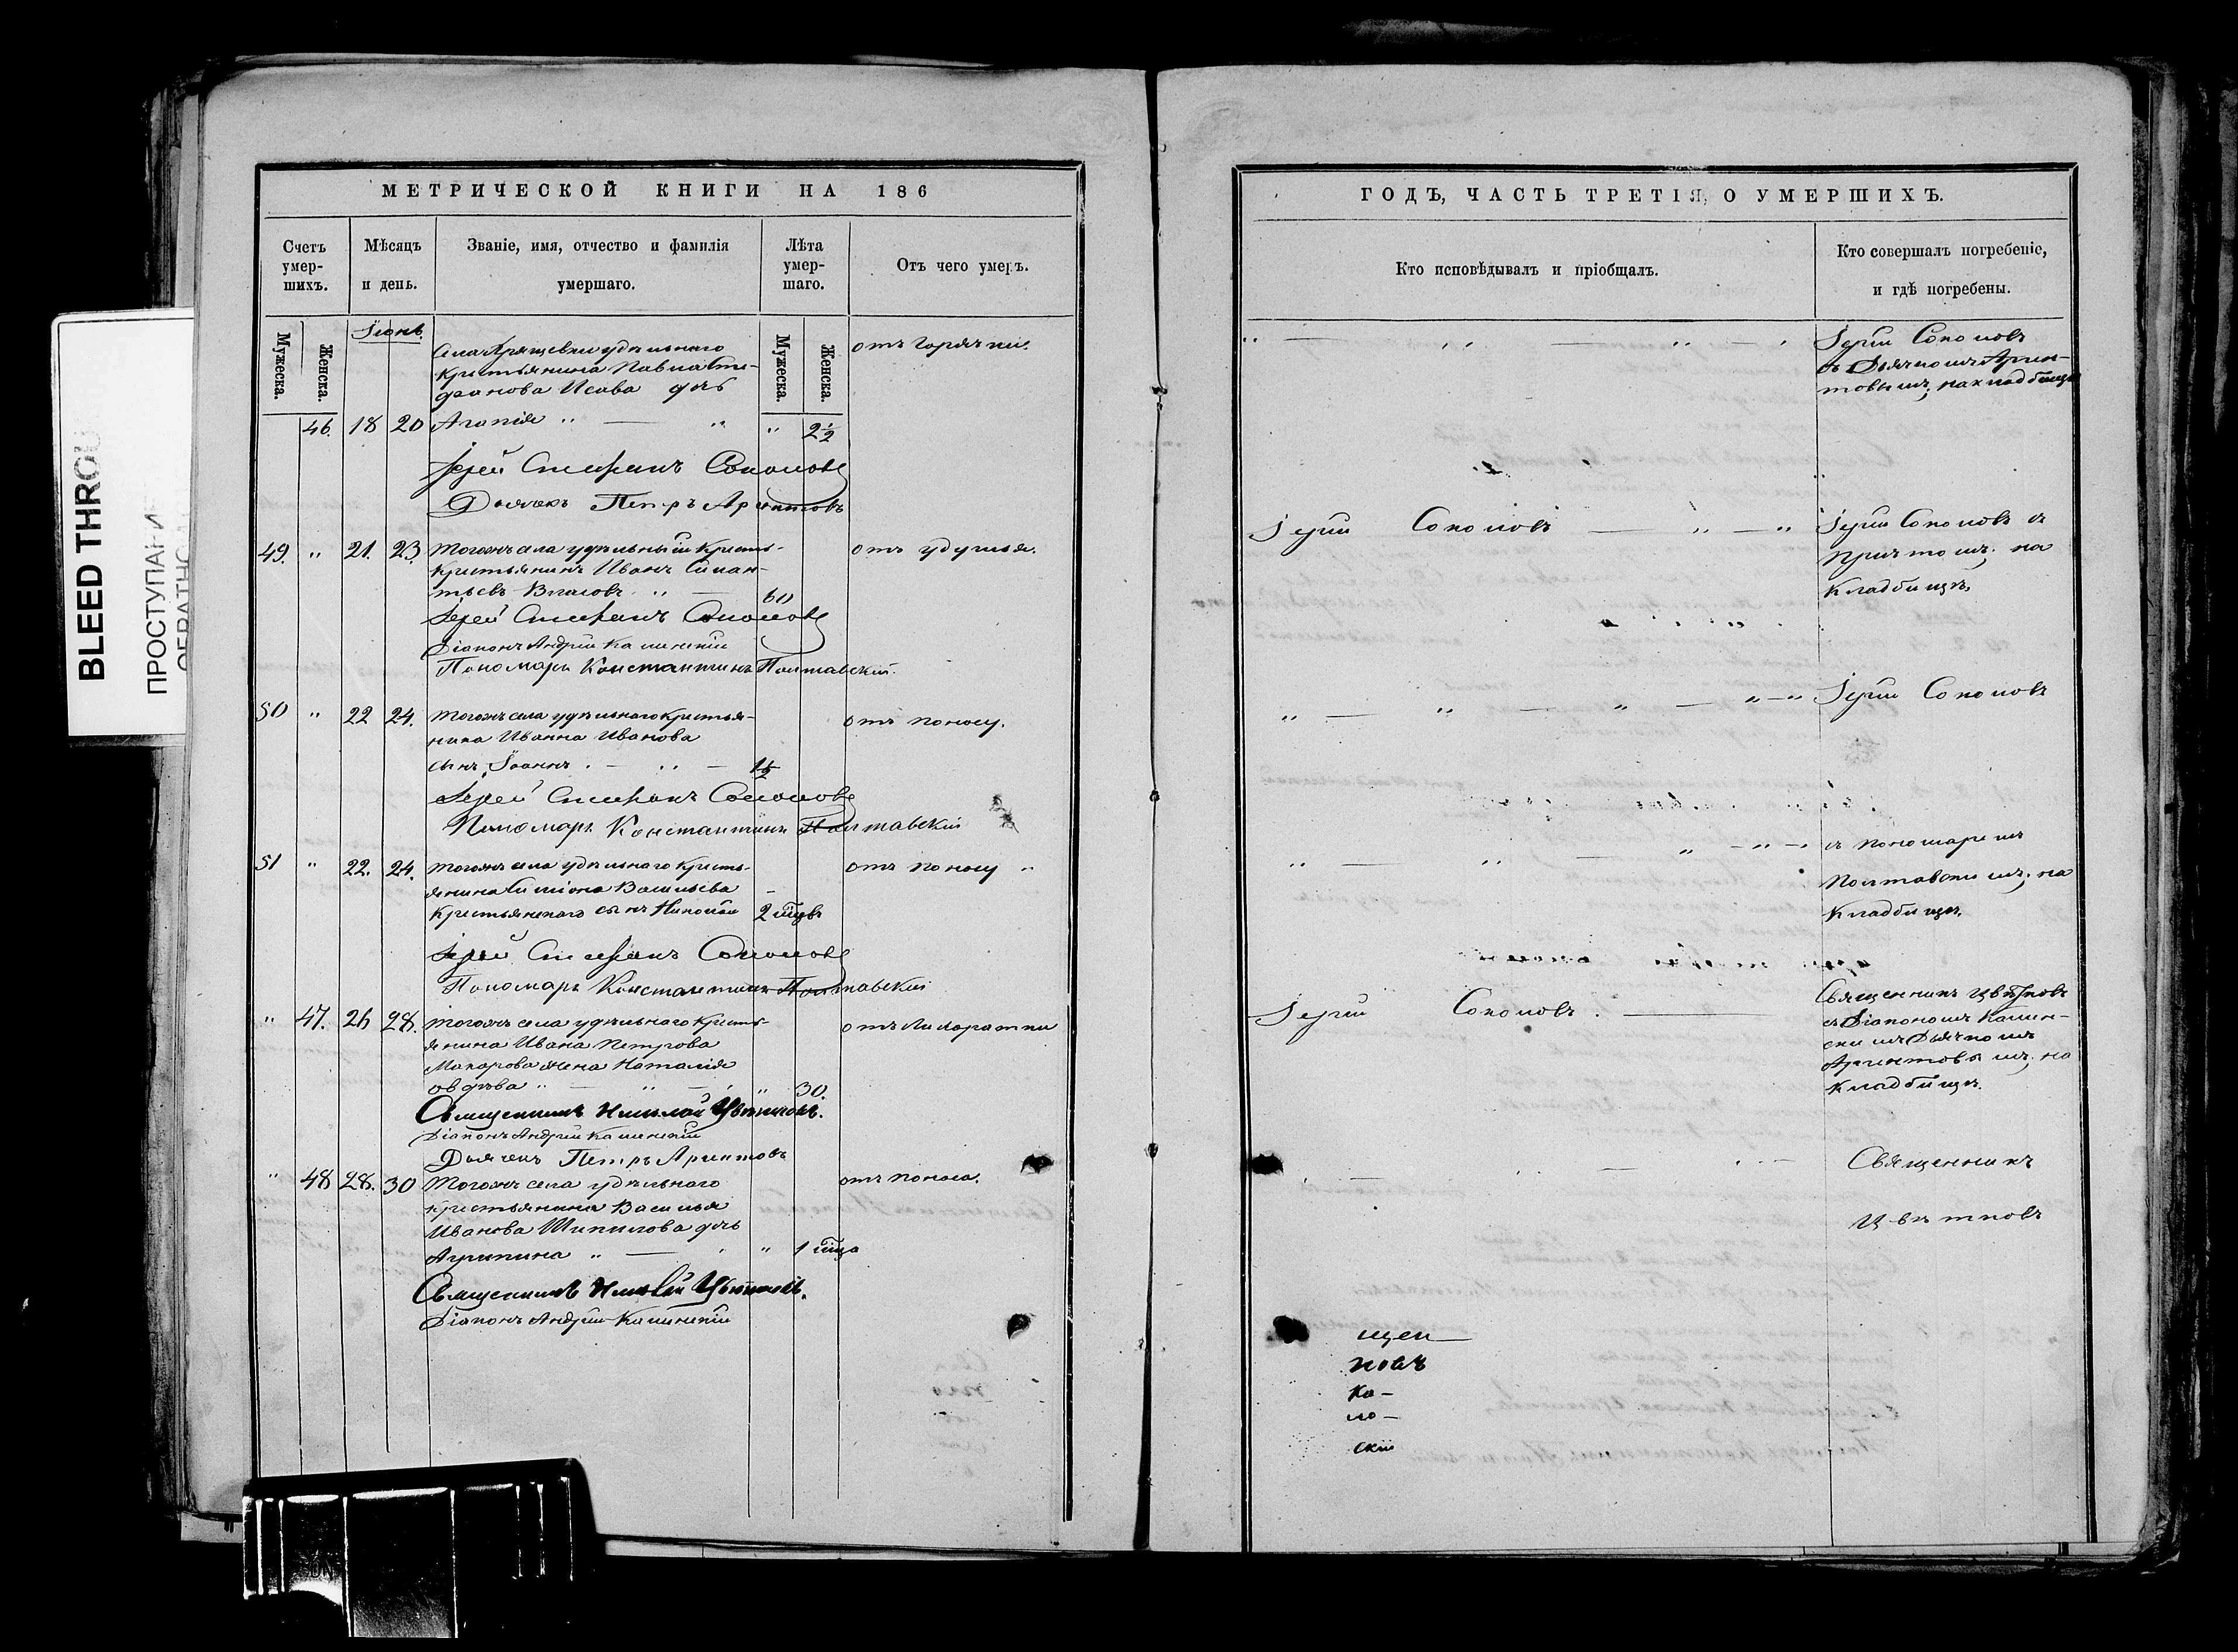 BLEED THROU
ПРОСТУПАНИ
ОБРАТНО
МЕТРИЧЕСКОЙ КНИГИ НА 186
Счетъ умер-шихъ.
Мѣсяцъ и день.
Званіе, имя, отчество и фамилія умершаго.
Лѣта умер-шаго.
Отъ чего умеръ.
Мужеска.
Женска.
Мужеска.
Женска.
Іюнь.
Села Хрящевки удѣльнаго
крестьянина Павла Сте-
фанова Исаева дочь
46. 18 20 Агапія " — " " 2½
отъ горячки.
Іерей Стефанъ Соколовъ
Дьячекъ Петръ Аргентовъ
49. " 21. 23. тогожъ села удѣльный кресть-
крестьянинъ Иванъ Силан-
тьевъ Власовъ " — 60
отъ удушья.
Іерей Стефанъ Соколовъ
Діаконъ Андрей Каменскій
Пономарь Константинъ Полтавскій.
50 " 22 24. тогожъ села удѣльнаго крестья-
нина Иванна Иванова
сынъ Іоаннъ. — " — 1½
отъ поносу.
Іерей Стефанъ Соколовъ
Пономарь Константинъ Полтавскій
51 " 22. 24. тогожъ села удѣльнаго кресть-
янина Симіона Васильева
крестьянскаго сынъ Николай 2 мцвъ
отъ поносу "
Іерей Стефанъ Соколовъ
Пономарь Константинъ Полтавскій
" 47. 26 28. тогожъ села удѣльнаго кресть-
янина Ивана Петрова
Макарова жена Наталія
" — " — " " 30.
отъ лихорадки
Священникъ Николай Цвѣтковъ.
Діаконъ Андрей Каменскій
Дьячекъ Петръ Аргентовъ
" 48 28. 30 тогожъ села удѣльнаго
крестьянина Василья
Иванова Шипилова дочь
Агрипина " — " " 1 мца
отъ поноса.
Священникъ Николай Цвѣтковъ.
Діаконъ Андрей Каменскій
ГОДЪ, ЧАСТЬ ТРЕТІЯ, О УМЕРШИХЪ.
Кто исповѣдывалъ и пріобщалъ.
Кто совершалъ погребеніе, и гдѣ погребены.
Іерей Соколовъ
съ Дьячкомъ Арген-
товымъ; на кладбищѣ
Іерей Соколовъ — " — "
Іерей Соколовъ съ
причтомъ; на
кладбищѣ.
" — " — " — " — "
Іерей Соколовъ
" — " — " — " — "
съ пономаремъ
Полтавскимъ; на
кладбищѣ.
Іерей Соколовъ. —
Священникъ Цвѣтковъ
съ Діакономъ Камен-
скимъ Дьячкомъ
Аргентовымъ; на
кладбищѣ.
Священникъ
Цвѣтковъ
щен—
ковъ
ка-
ло-
скій